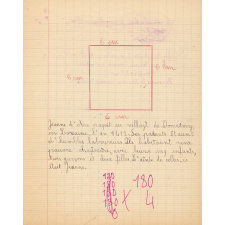 6 cm
6 cm
6 cm
6 cm
Jeanne d'Arc naquit au village de Domrémy
en Lorraine, l'an 1412. Ses parents étaient
de humbles laboureurs. Ils habitaient une
pauvre chaumière, avec leurs cinq enfants,
trois garçons et deux filles. L'aînée de celles-ci
était Jeanne.
180
180
180
180
180
X 4